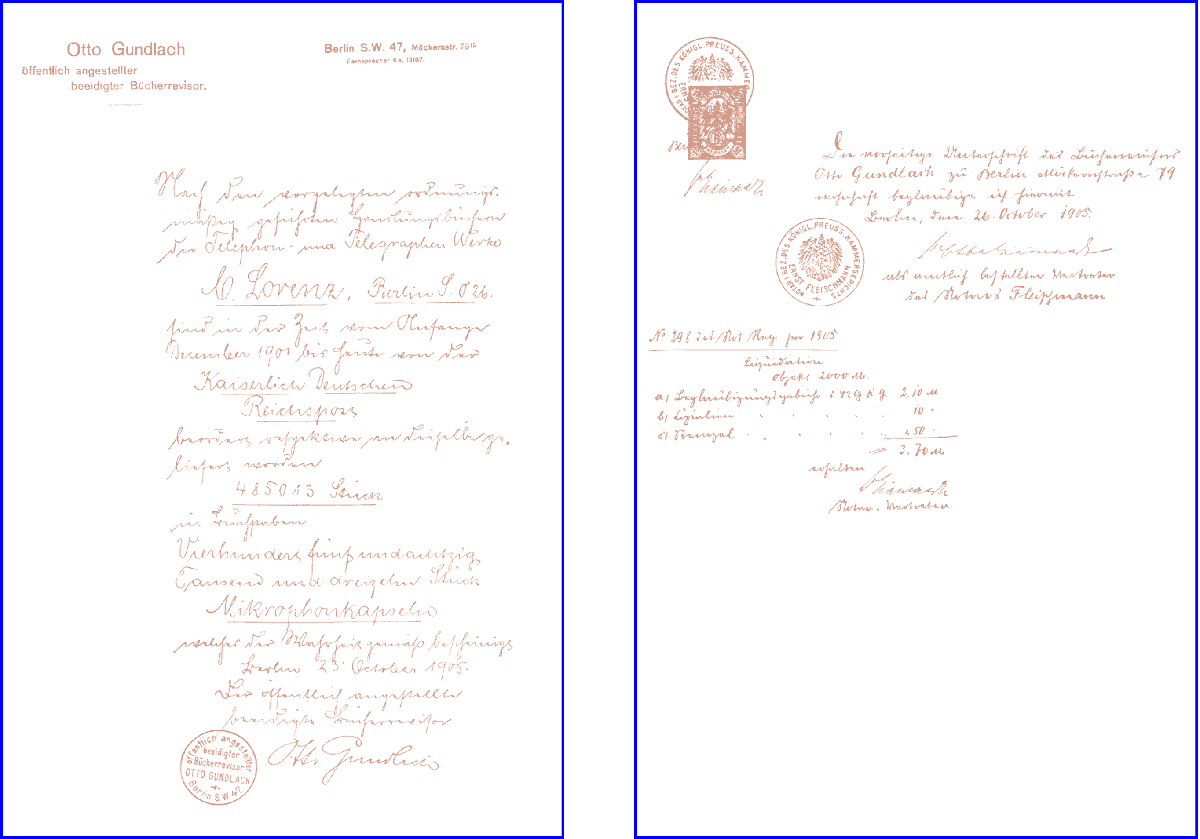 Otto Gundlach
öffentlich angestellter
beeidigter Bücherrevisor.
Berlin S.W. 47, Möckernstr. 79
Fernsprecher 12157.
Nach den vorgelegten ordnungs-
mäßig geführten Handlungsbüchern
der Telephon- und Telegraphen Werke
C. Lorenz, Berlin S. O 26.
sind in der Zeit vom Anfange
Dezember 1901 bis heute von der
Kaiserlich Deutschen
Reichspost
beordert respektive an dieselbe ge-
liefert worden
485013 Stück
in Buchstaben
Vierhundert fünf und achtzig
Tausend und dreizehn Stück
Mikrophonkapseln
welches der Wahrheit gemäß bescheinigt
Berlin 25. October 1905.
Der öffentlich angestellte
beeidigte Bücherrevisor
Otto Gundlach
öffentlich angestellter
beeidigter
Bücherrevisor
OTTO GUNDLACH
Berlin S W 47
NOTAR I. BEZ. DES KÖNIGL. PREUSS. KAMMER
Die vorseitige Unterschrift des Bücherrevisors
Otto Gundlach zu Berlin Möckernstraße 79
wohnhaft beglaubige ich hiermit
Berlin, den 26. October 1905.
NOTAR I. BEZ. DES KÖNIGL. PREUSS. KAMMERGERICHTS
ERNST FLEISCHMANN
als amtlich bestellter Vertreter
des Notars Fleischmann
No 298 des Not Reg. pro 1905
Liquidation
Objekt 2000 M.
a) Beglaubigungsgebühr 2,10 M
b) 10
c) Stempel 1,50
3.70 M
erhalten
Notar-Vertreter.